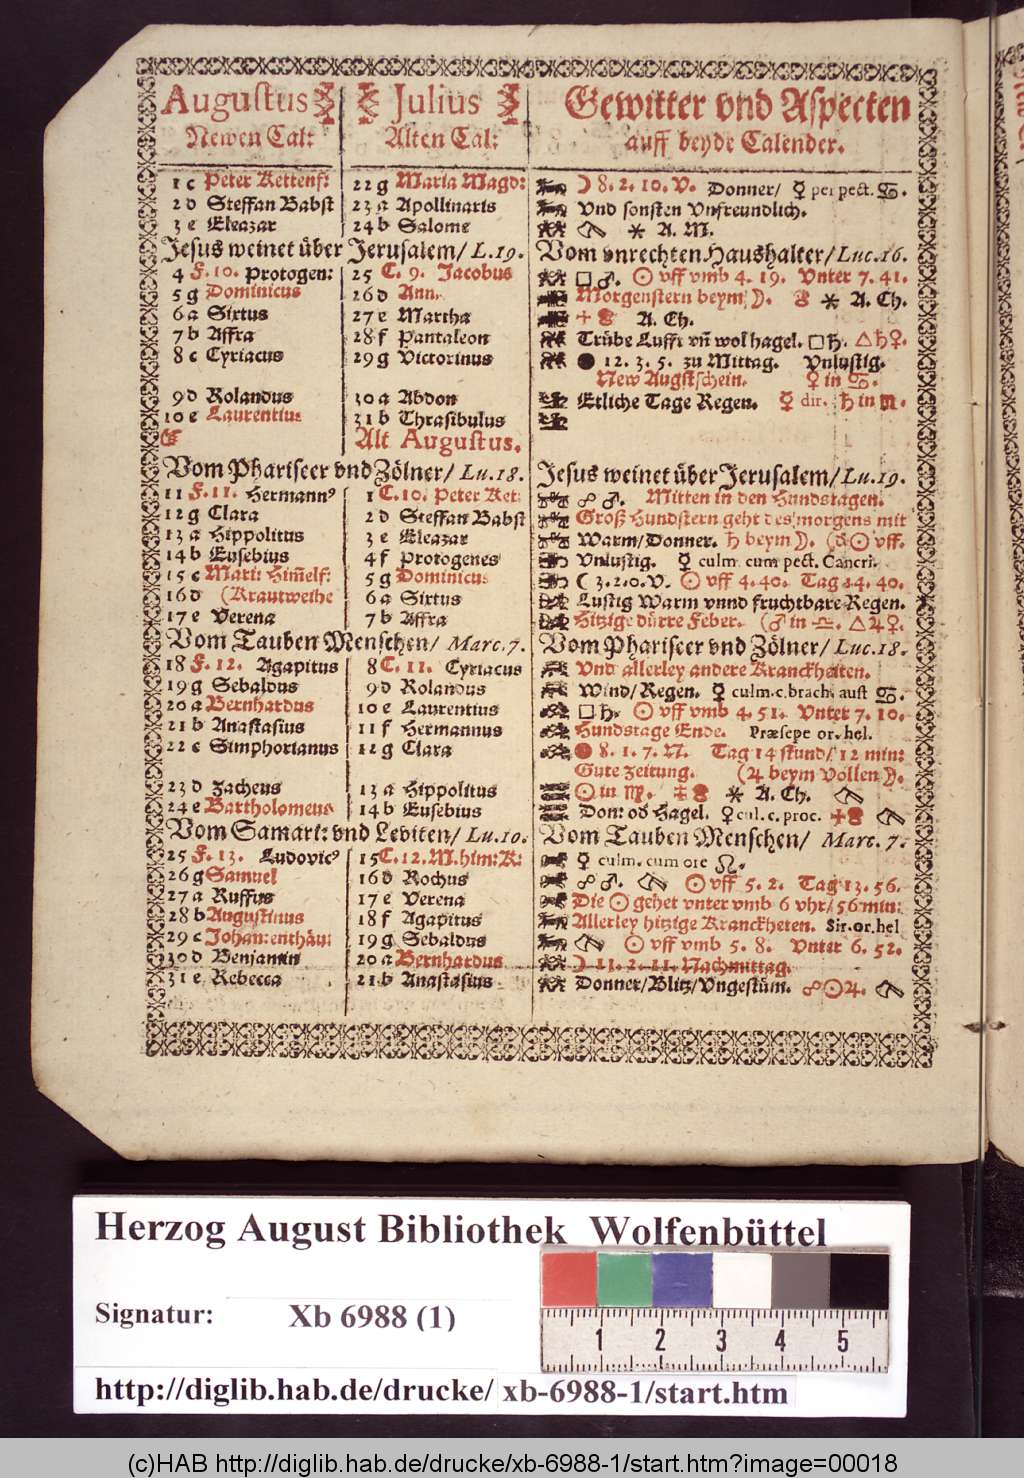 Augustus Julius Gewitter vnd Aspecten
Newen Cal: Alten Cal: auff beyde Calender.
1 c Peter Kettenf: 22 g Maria Magd: ☽ 8. 2. 10. V. Donner/ ☿ per pect. ♋.
2 d Steffan Babst 23 a Apollinaris Vnd sonsten Vnfreundlich.
3 e Eleazar 24 b Salome ⚹ A. M.
Jesus weinet über Jerusalem/ L. 19. Vom vnrechten Haushalter/ Luc. 16.
4 F. 10. Protogen: 25 C. 9. Jacobus □ ♂. ☉ vff vmb 4. 19. Vnter 7. 41.
5 g Dominicus 26 d Ann. Morgenstern beym ☽. ⚹ A. Ch.
6 a Sixtus 27 e Martha A. Ch.
7 b Affra 28 f Pantaleon Trübe Lufft vn̄ wol hagel. □ ♄. △ ♄ ♀.
8 c Cyriacus 29 g Victorinus ● 12. 3. 5. zu Mittag. Vnlustig.
New Augstschein. ♀ in ♋.
9 d Rolandus 30 a Abdon Etliche Tage Regen. ☿ dir. ♄ in ♏.
10 e Laurentius 31 b Thrasibulus
Alt Augustus.
Vom Phariseer vnd Zölner/ Lu. 18. Jesus weinet über Jerusalem/ Lu. 19.
11 F. 11. Hermannꝰ 1 C. 10. Peter Ket: ☍ ♂. Mitten in den Hundstagen.
12 g Clara 2 d Steffan Babst Groß Hundstern geht des morgens mit
13 a Hippolitus 3 e Eleazar Warm/ Donner. ♄ beym ☽. (d ☉ vff.
14 b Eusebius 4 f Protogenes Vnlustig. ☿ culm. cum pect. Cancri.
15 c Mari: Him̄elf: 5 g Dominicus ☾ 3. 2. 0. V. ☉ vff 4. 40. Tag 14. 40.
16 d (Krautweihe 6 a Sixtus Lustig Warm vnnd fruchtbare Regen.
17 e Verena 7 b Affra Hitzige dürre Feber. (♂ in ♎. △ ♃ ♀.
Vom Tauben Menschen/ Marc. 7. Vom Phariseer vnd Zölner/ Luc. 18.
18 F. 12. Agapitus 8 C. 11. Cyriacus Vnd allerley andere Kranckheiten.
19 g Sebaldus 9 d Rolandus Wind/ Regen. ☿ culm. c. brach. aust ♋.
20 a Bernhardus 10 e Laurentius □ ♄. ☉ vff vmb 4. 51. Vnter 7. 10.
21 b Anastasius 11 f Hermannus Hundstage Ende. Præsepe or. hel.
22 c Simphorianus 12 g Clara ● 8. 1. 7. N. Tag 14 stund/ 12 min:
Gute Zeitung. (♃ beym Vollen ☽.
23 d Zacheus 13 a Hippolitus ☉ in ♍. ⚹ A. Ch.
24 e Bartholomeus 14 b Eusebius Don: od̄ Hagel. ♀ cul. c. proc.
Vom Samari: vnd Leviten/ Lu. 10. Vom Tauben Menschen/ Marc. 7.
25 F. 13. Ludovicꝰ 15 C. 12. M. him: K: ☿ culm. cum ore ♌.
26 g Samuel 16 d Rochus ☍ ♂. ☉ vff 5. 2. Tag 13. 56.
27 a Ruffus 17 e Verena Die ☉ gehet vnter vmb 6 vhr/ 56 min:
28 b Augustinus 18 f Agapitus Allerley hitzige Kranckheten. Sir. or. hel
29 c Johan: enthäu: 19 g Sebaldus ☉ vff vmb 5. 8. Vnter 6. 52.
30 d Benjamin 20 a Bernhardus ☽ 11. 2. 11. Nachmittag.
31 e Rebecca 21 b Anastasius Donner/ Blitz/ Vngestüm. ☍ ☉ ♃.
Herzog August Bibliothek Wolfenbüttel
Signatur: Xb 6988 (1)
1 2 3 4 5
http://diglib.hab.de/drucke/ xb-6988-1/start.htm
(c)HAB http://diglib.hab.de/drucke/xb-6988-1/start.htm?image=00018